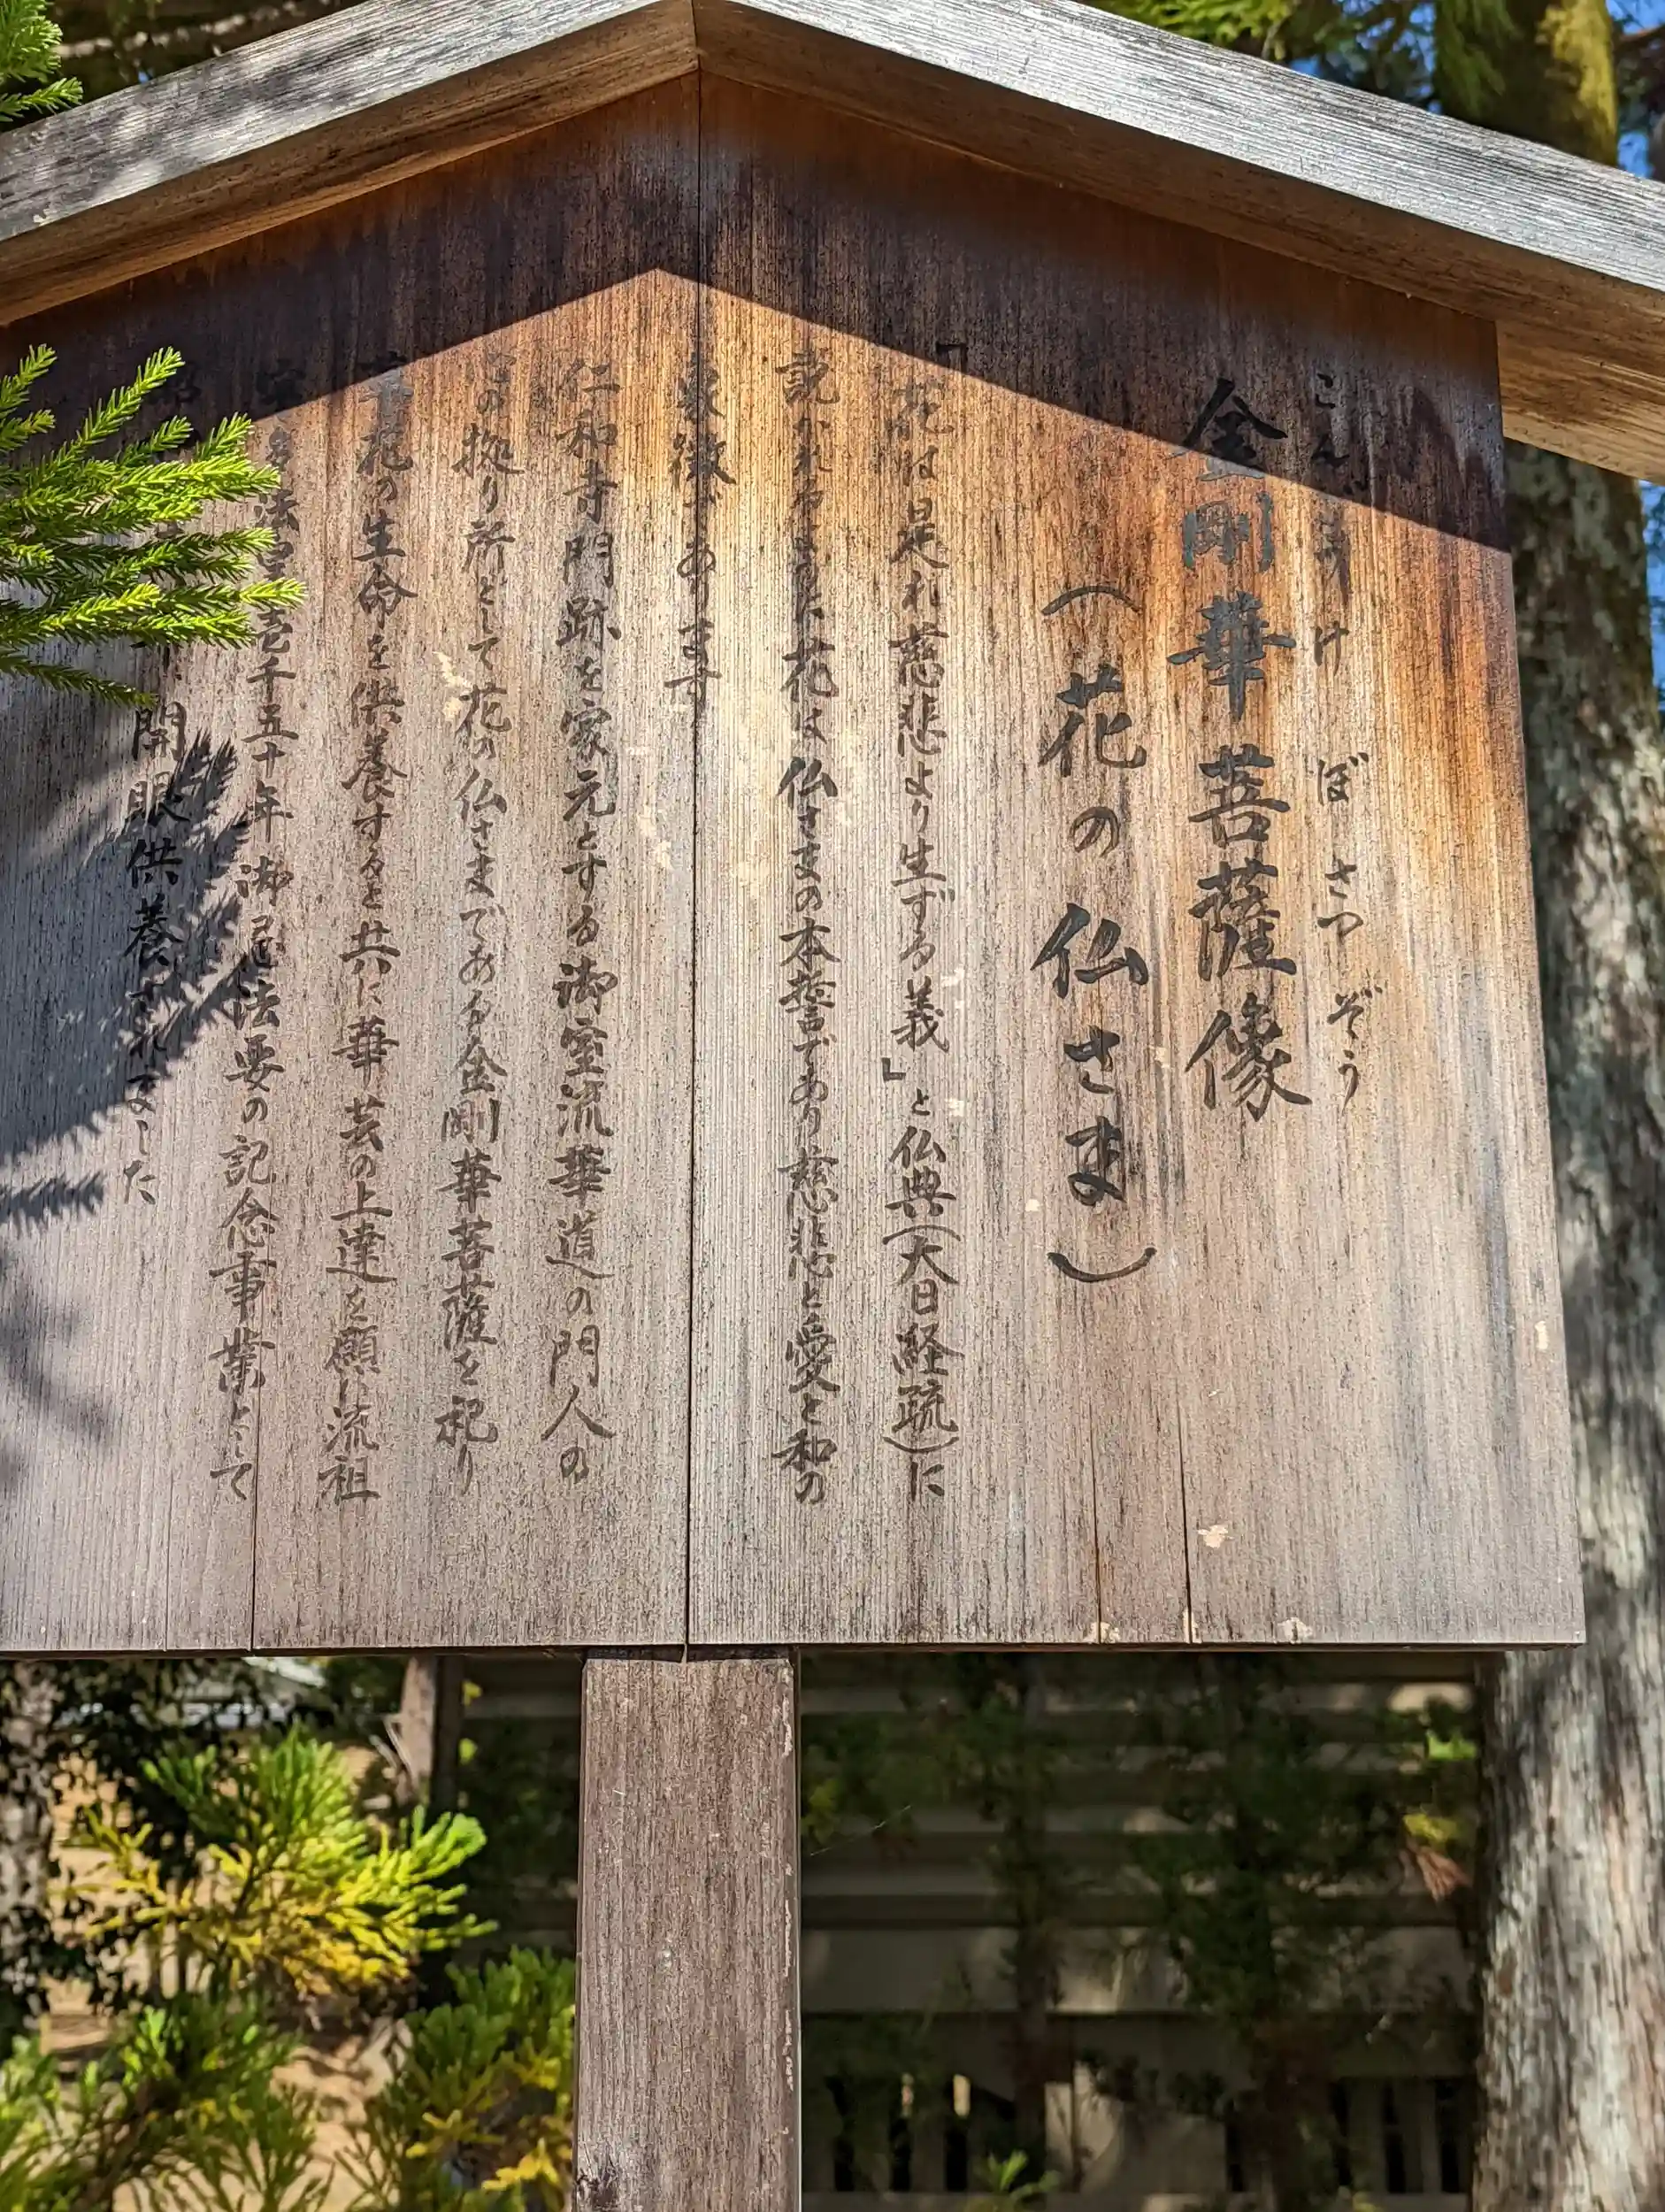 こんごうけ ぼさつぞう
金剛華菩薩像
(花の仏さま)
「花は是れ慈悲より生ずる義」と仏典(大日経疏)に
説かれるように花は仏さまの本誓であり慈悲と愛と和の
象徴であります
仁和寺門跡を家元とする御室流華道の門人の
拠り所として花の仏さまである金剛華菩薩を祀り
草花の生命を供養すると共に華芸の上達を願い流祖
法皇壱千五十年御忌法要の記念事業として
開眼供養されました